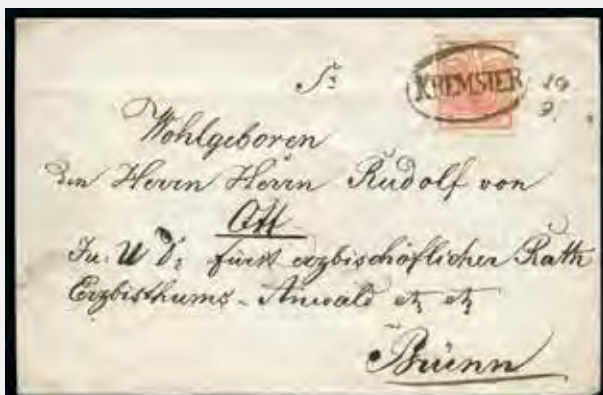 Sr
KREMSIER 19
9.
Wohlgeboren
den Herrn Herrn Rudolf von
Ott
Ju. U Dr fürst erzbischöflicher Rath
Erzbisthums-Anwald etz etz
Brünn